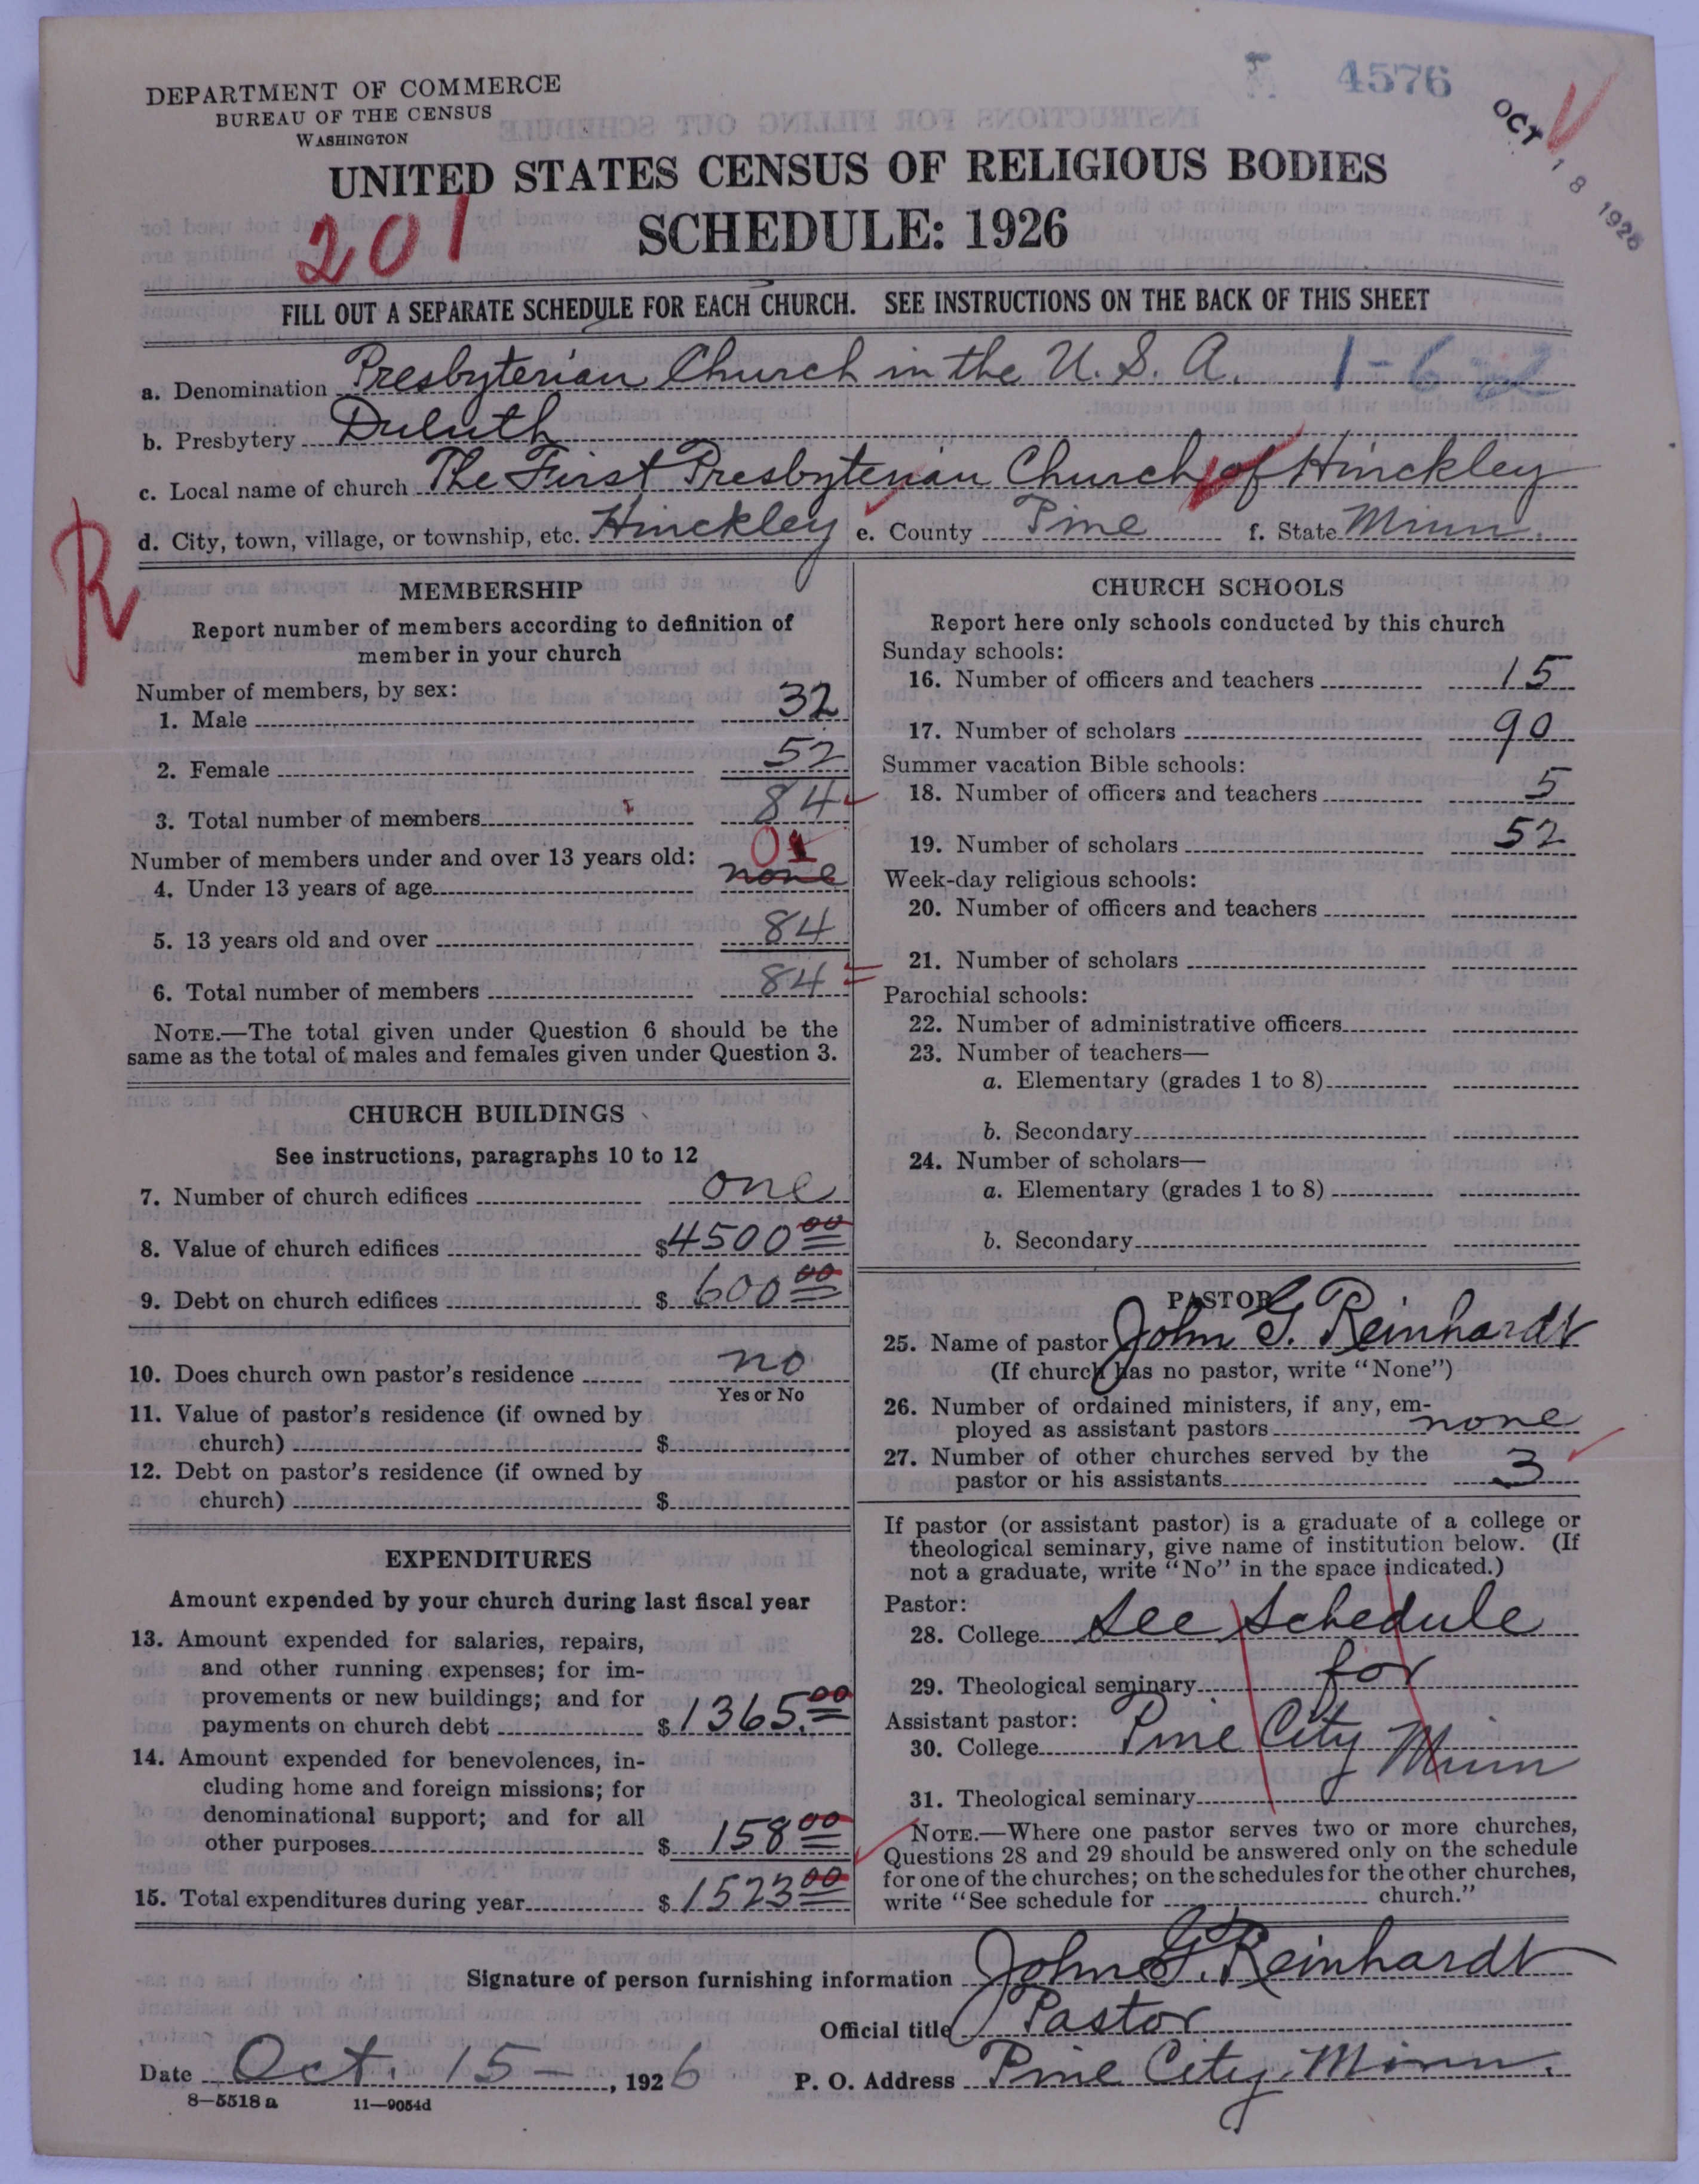 4576
OCT 18 1926
DEPARTMENT OF COMMERCE
BUREAU OF THE CENSUS
WASHINGTON
UNITED STATES CENSUS OF RELIGIOUS BODIES
SCHEDULE: 1926
201
FILL OUT A SEPARATE SCHEDULE FOR EACH CHURCH. SEE INSTRUCTIONS ON THE BACK OF THIS SHEET
a. Denomination Presbyterian Church in the U. S. A.
b. Presbytery Duluth
c. Local name of church The First Presbyterian Church of Hinckley
d. City, town, village, or township, etc. Hinckley e. County Pine f. State Minn.
R
MEMBERSHIP
Report number of members according to definition of
member in your church
Number of members, by sex:
1. Male 32
2. Female 52
3. Total number of members 84
Number of members under and over 13 years old:
4. Under 13 years of age none
5. 13 years old and over 84
6. Total number of members 84
NOTE.—The total given under Question 6 should be the
same as the total of males and females given under Question 3.
CHURCH BUILDINGS
See instructions, paragraphs 10 to 12
7. Number of church edifices one
8. Value of church edifices $4500 00
9. Debt on church edifices $600 00
10. Does church own pastor's residence no
Yes or No
11. Value of pastor's residence (if owned by
church) $
12. Debt on pastor's residence (if owned by
church) $
EXPENDITURES
Amount expended by your church during last fiscal year
13. Amount expended for salaries, repairs,
and other running expenses; for im-
provements or new buildings; and for
payments on church debt $1365.00
14. Amount expended for benevolences, in-
cluding home and foreign missions; for
denominational support; and for all
other purposes $158 00
15. Total expenditures during year $1523 00
CHURCH SCHOOLS
Report here only schools conducted by this church
Sunday schools:
16. Number of officers and teachers 15
17. Number of scholars 90
Summer vacation Bible schools:
18. Number of officers and teachers 5
19. Number of scholars 52
Week-day religious schools:
20. Number of officers and teachers
21. Number of scholars
Parochial schools:
22. Number of administrative officers
23. Number of teachers—
a. Elementary (grades 1 to 8)
b. Secondary
24. Number of scholars—
a. Elementary (grades 1 to 8)
b. Secondary
PASTOR
25. Name of pastor John G. Reinhardt
(If church has no pastor, write "None")
26. Number of ordained ministers, if any, em-
ployed as assistant pastors none
27. Number of other churches served by the
pastor or his assistants 3
If pastor (or assistant pastor) is a graduate of a college or
theological seminary, give name of institution below. (If
not a graduate, write "No" in the space indicated.)
Pastor:
28. College See Schedule
29. Theological seminary for
Assistant pastor:
30. College Pine City Minn
31. Theological seminary
NOTE.—Where one pastor serves two or more churches,
Questions 28 and 29 should be answered only on the schedule
for one of the churches; on the schedules for the other churches,
write "See schedule for church."
Signature of person furnishing information John G. Reinhardt
Official title Pastor
Date Oct. 15 — , 1926 P. O. Address Pine City, Minn.
8—5518 a 11—9054d